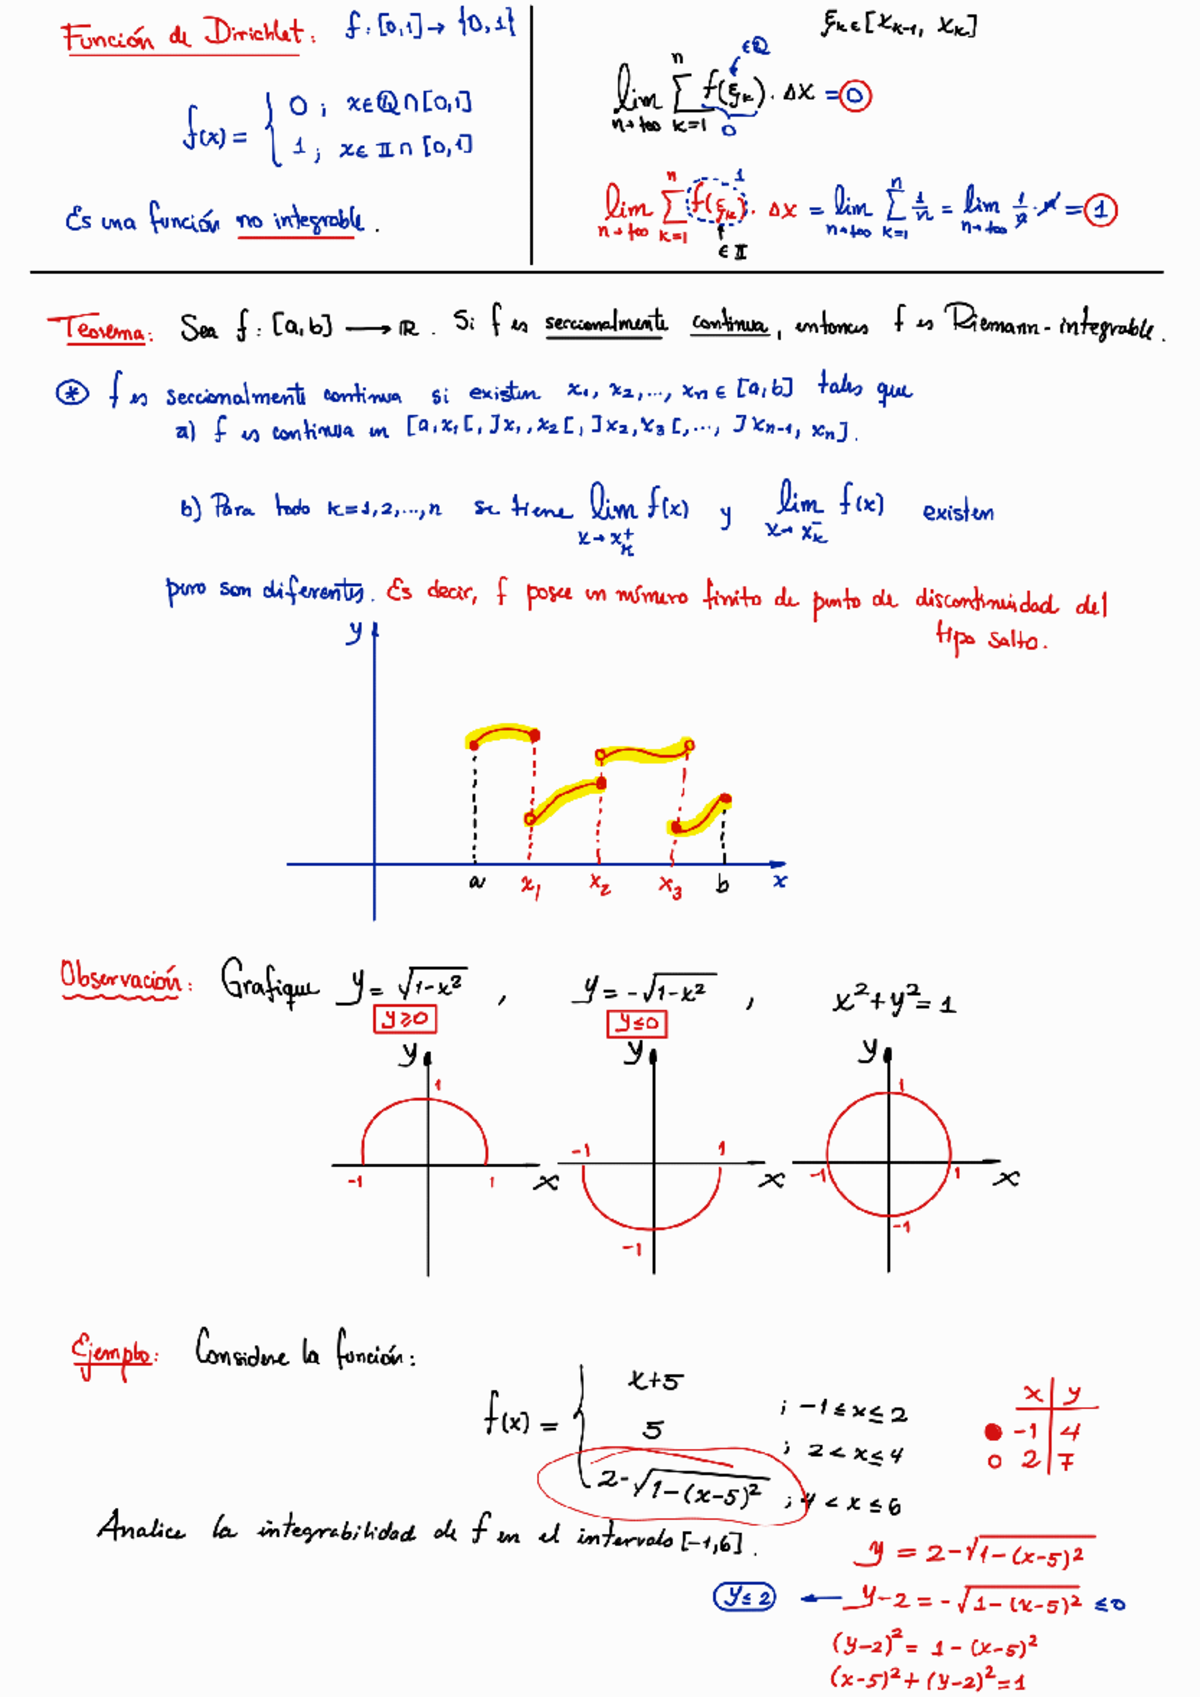 Función de Dirichlet: f: [0,1] → {0,1}
f(x) = { 0 ; x ∈ ℚ ∩ [0,1]
1 ; x ∈ 𝕀 ∩ [0,1]
Es una función no integrable.
ξk ∈ [xk-1, xk]
∈ℚ
lim n→+∞ n Σ k=1 f(ξk) · Δx = 0
0
lim n→+∞ n Σ k=1 f(ξk) · Δx = lim n→+∞ n Σ k=1 1/n = lim n→+∞ 1/n · n = 1
1
∈ 𝕀
Teorema: Sea f: [a,b] → ℝ. Si f es seccionalmente continua, entonces f es Riemann-integrable.
* f es seccionalmente continua si existen x1, x2, ..., xn ∈ [a,b] tales que
a) f es continua en [a,x1[, ]x1,x2[, ]x2,x3[, ..., ]xn-1, xn].
b) Para todo k=1,2,...,n se tiene lim x→xk+ f(x) y lim x→xk- f(x) existen
pero son diferentes. Es decir, f posee un número finito de punto de discontinuidad del
tipo salto.
y
a x1 x2 x3 b x
Observación: Grafique y = √(1-x²) , y = -√(1-x²) , x²+y²=1
y≥0 y≤0
y y y
1 1
-1 1
-1 1 x x -1 1 x
-1
-1
Ejemplo: Considere la función:
f(x) = { x+5 ; -1 ≤ x ≤ 2
5 ; 2 < x ≤ 4
2-√(1-(x-5)²) ; 4 < x ≤ 6
x | y
-1 | 4
2 | 7
Analice la integrabilidad de f en el intervalo [-1,6].
y = 2-√(1-(x-5)²)
y≤2 ← y-2 = -√(1-(x-5)²) ≤0
(y-2)² = 1-(x-5)²
(x-5)²+(y-2)²=1